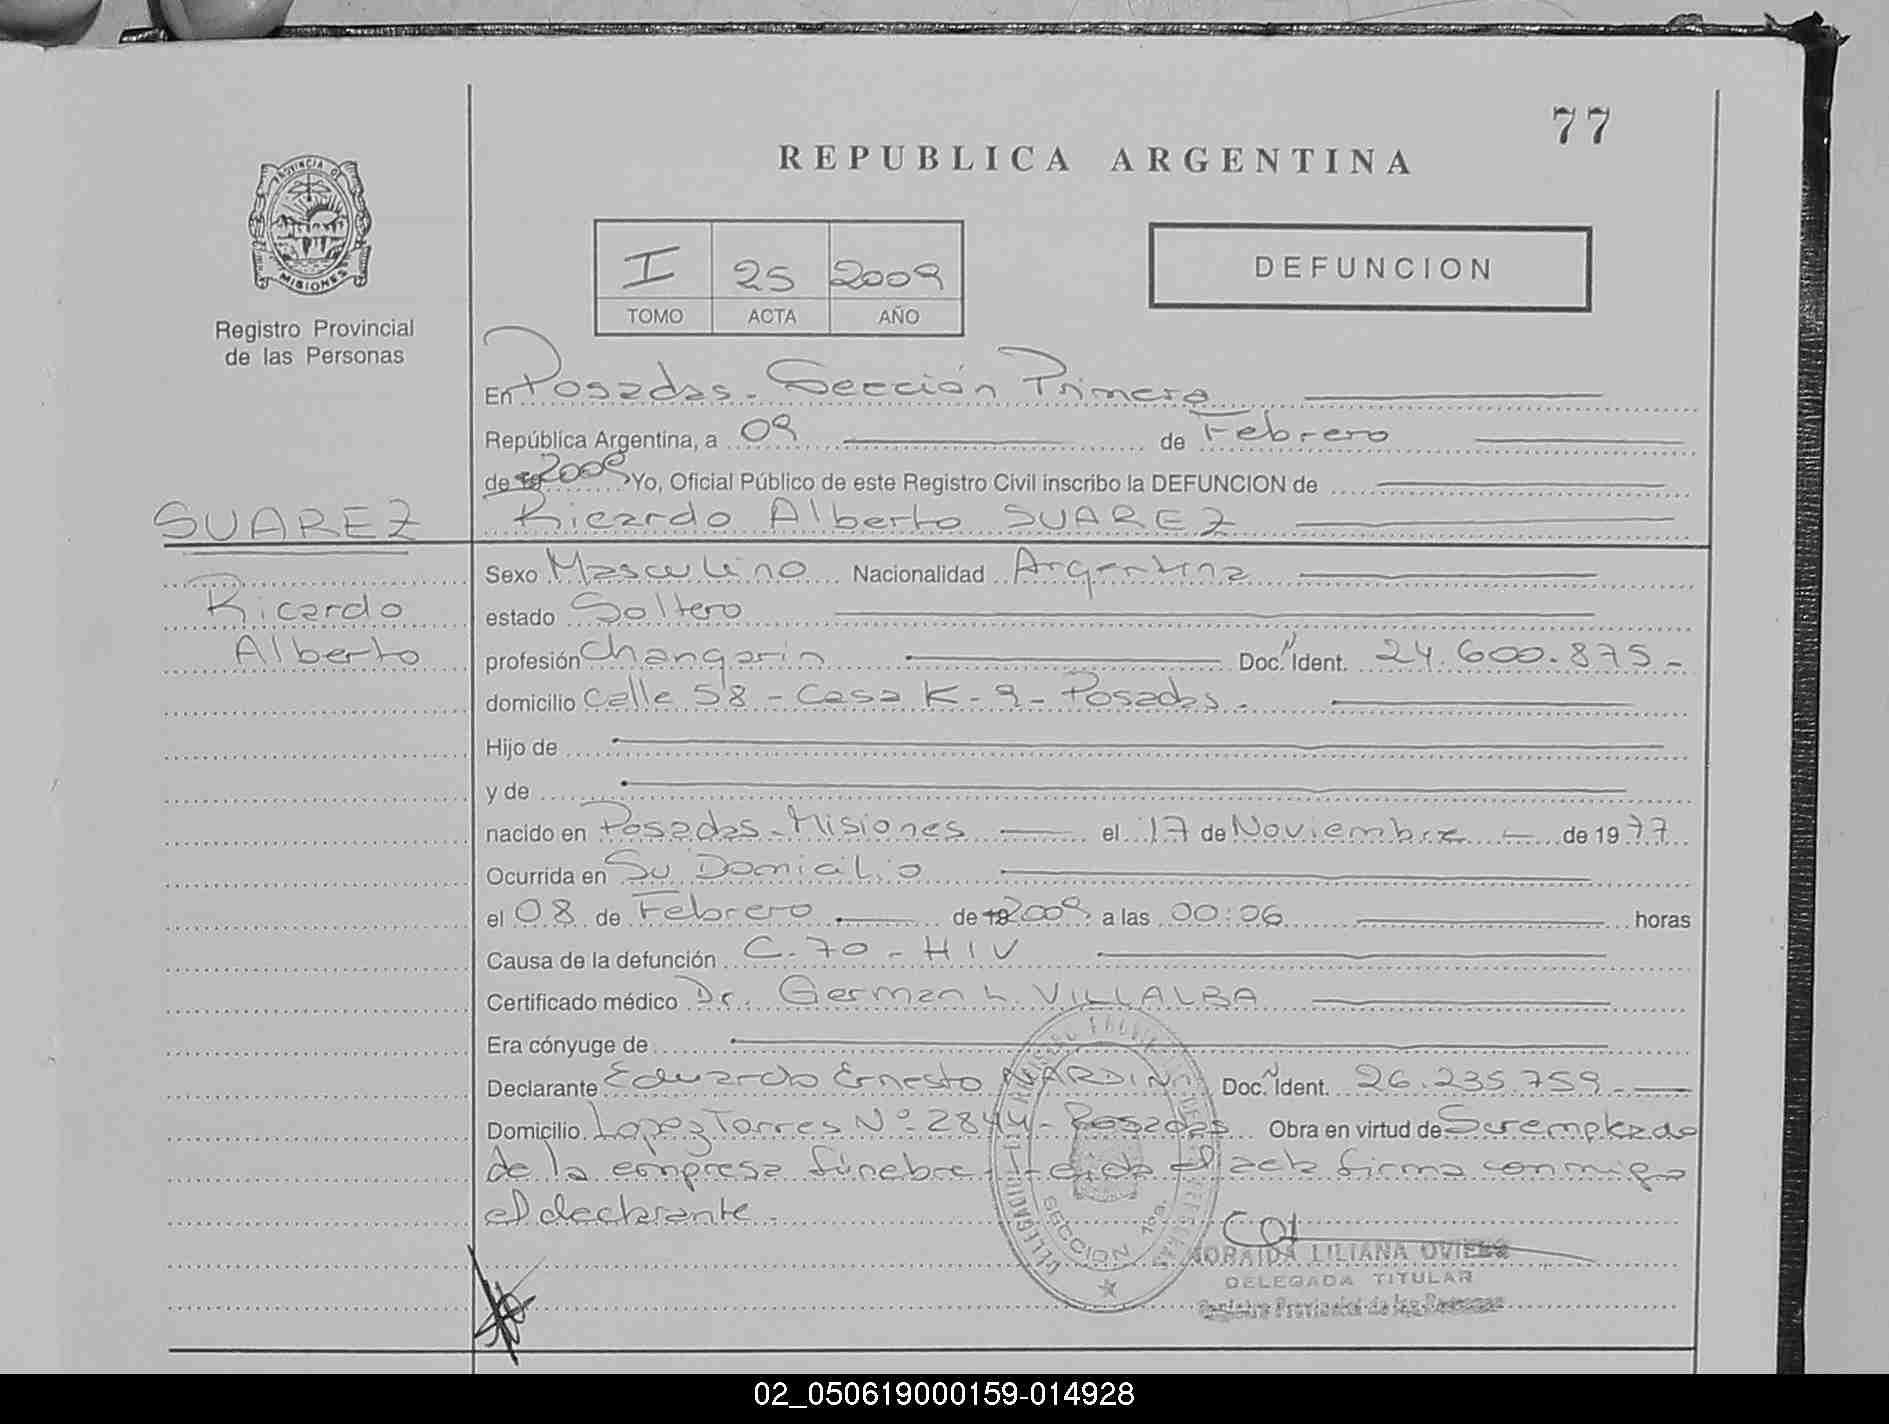 77
REPUBLICA ARGENTINA
PROVINCIA DE
MISIONES
Registro Provincial
de las Personas
I 25 2009
TOMO ACTA AÑO
DEFUNCION
En Posadas - Sección Primera
República Argentina, a 09 de Febrero
de 19 2009 Yo, Oficial Público de este Registro Civil inscribo la DEFUNCION de
SUAREZ
Ricardo Alberto SUAREZ
Ricardo
Alberto
Sexo Masculino Nacionalidad Argentina
estado Soltero
profesión Changarin Doc. Ident. 24.600.875-
domicilio Calle 58 - Casa K-9 - Posadas -
Hijo de
y de
nacido en Posadas - Misiones el 17 de Noviembre de 1977
Ocurrida en Su Domicilio
el 08 de Febrero de 19 2009 a las 00:06 horas
Causa de la defunción C-70 - HIV
Certificado médico Dr. German L. VILLALBA
Era cónyuge de
Declarante Eduardo Ernesto NARDINI Doc. Ident. 26.235.759-
Domicilio Lopez Torres Nº 2844 - Posadas Obra en virtud de Ser empleado
de la empresa fúnebre - Leida el acta firma conmigo
el declarante -
SECCION 1ra.
NORAIDA LILIANA OVIEDO
DELEGADA TITULAR
Registro Provincial de las Personas
02_050619000159-014928